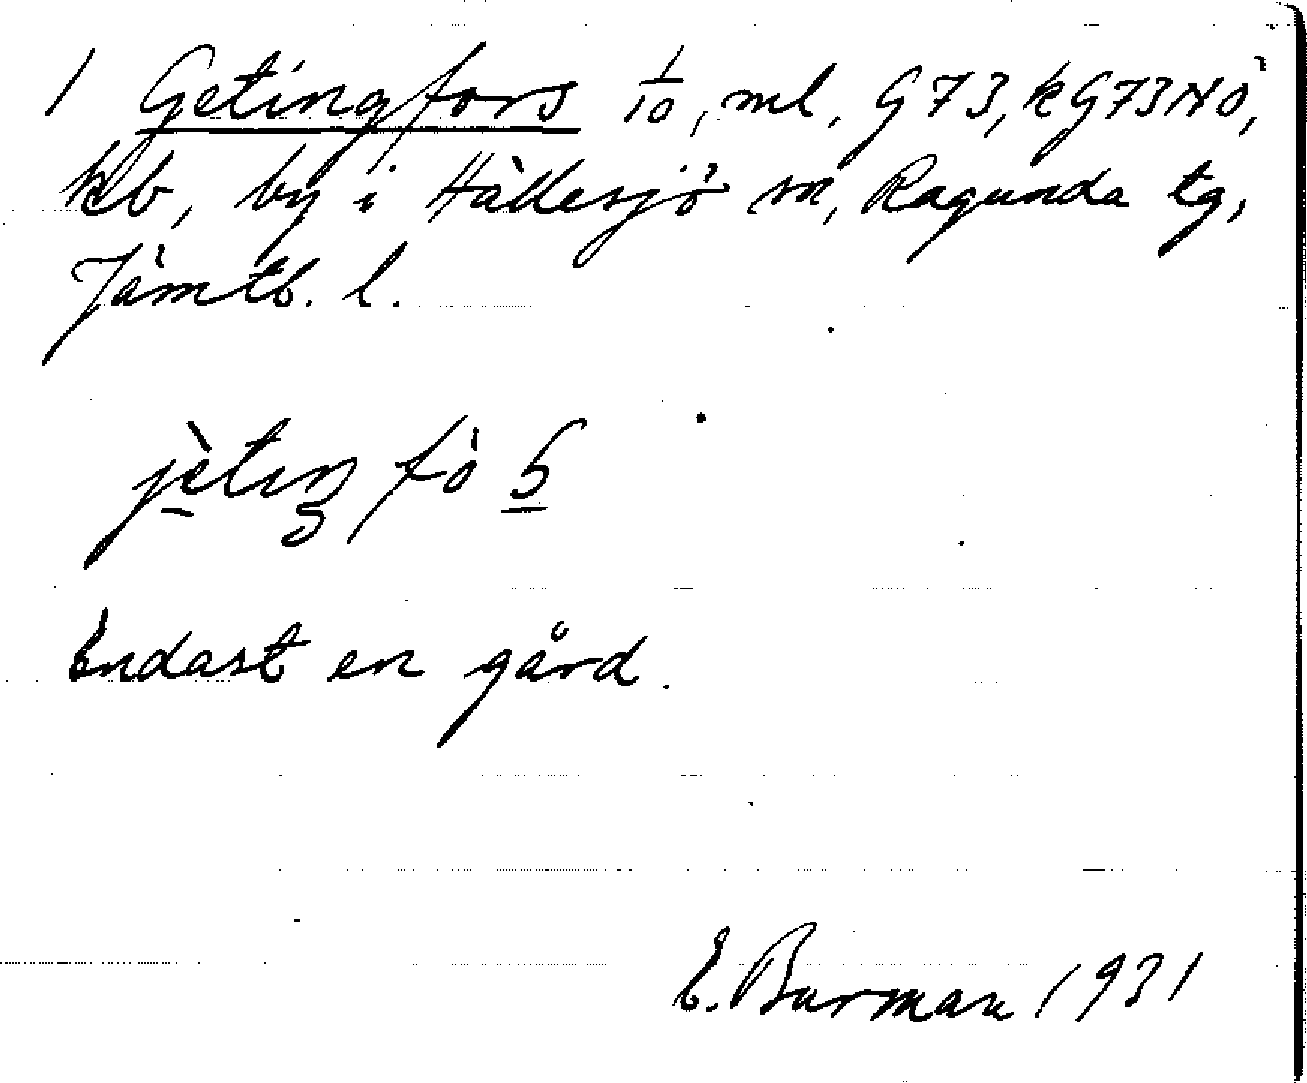 1 Getingfors 1/10, ml, G73, kG73NÖ,
kb, by i Hällesjö sn, Ragunda tg,
Jämtl. l.
Endast en gård.
E. Burman 1931